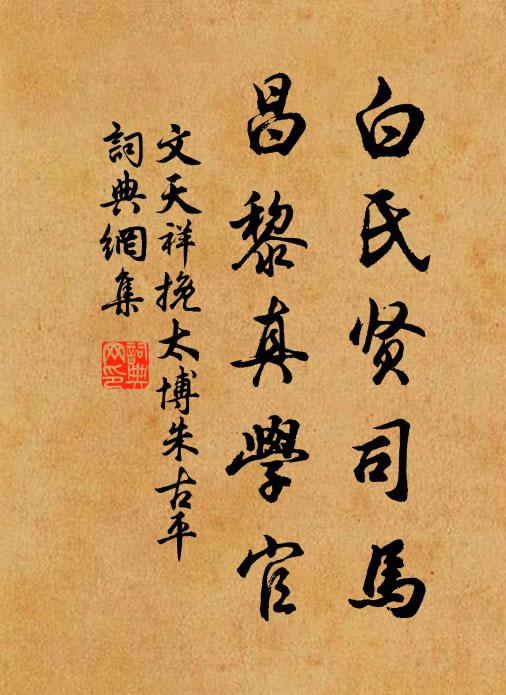 白氏贤司馬
昌黎真學官
文天祥挽太博朱古平
詞典網集
詞典網印